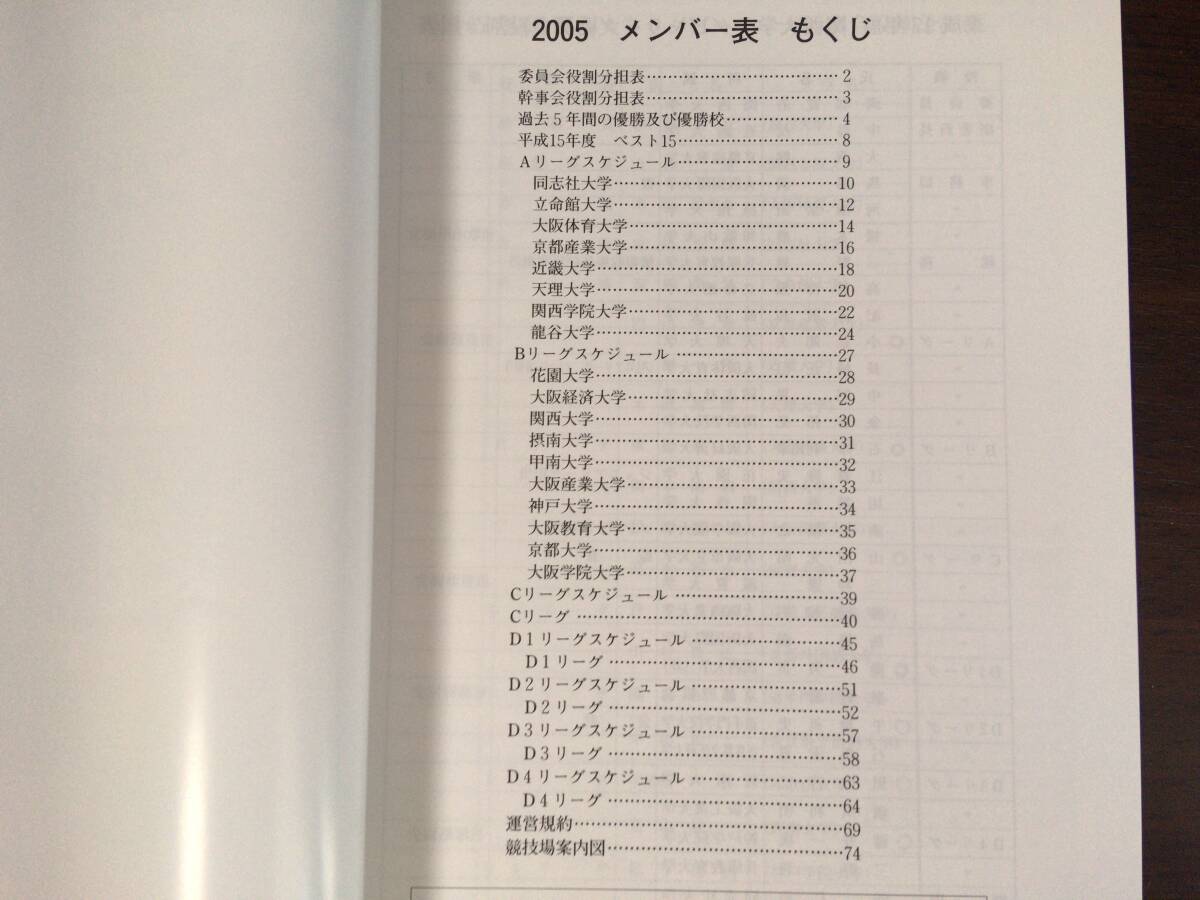 2005　メンバー表　もくじ
委員会役割分担表……………………………… 2
幹事会役割分担表……………………………… 3
過去５年間の優勝及び優勝校………………… 4
平成15年度　ベスト15………………………… 8
Ａリーグスケジュール………………………… 9
同志社大学……………………………………10
立命館大学……………………………………12
大阪体育大学…………………………………14
京都産業大学…………………………………16
近畿大学………………………………………18
天理大学………………………………………20
関西学院大学…………………………………22
龍谷大学………………………………………24
Ｂリーグスケジュール …………………………27
花園大学………………………………………28
大阪経済大学…………………………………29
関西大学………………………………………30
摂南大学………………………………………31
甲南大学………………………………………32
大阪産業大学…………………………………33
神戸大学………………………………………34
大阪教育大学…………………………………35
京都大学………………………………………36
大阪学院大学…………………………………37
Ｃリーグスケジュール …………………………39
Ｃリーグ …………………………………………40
Ｄ１リーグスケジュール ………………………45
Ｄ１リーグ ……………………………………46
Ｄ２リーグスケジュール ………………………51
Ｄ２リーグ ……………………………………52
Ｄ３リーグスケジュール ………………………57
Ｄ３リーグ ……………………………………58
Ｄ４リーグスケジュール ………………………63
Ｄ４リーグ ……………………………………64
運営規約…………………………………………69
競技場案内図……………………………………74